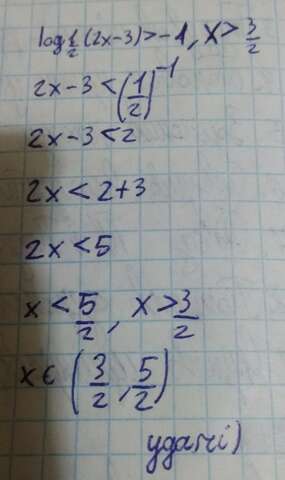 log 1/2 (2x-3) > -1, x > 3/2
2x-3 < (1/2)^-1
2x-3 < 2
2x < 2+3
2x < 5
x < 5/2, x > 3/2
x ∈ (3/2, 5/2)
удачі)